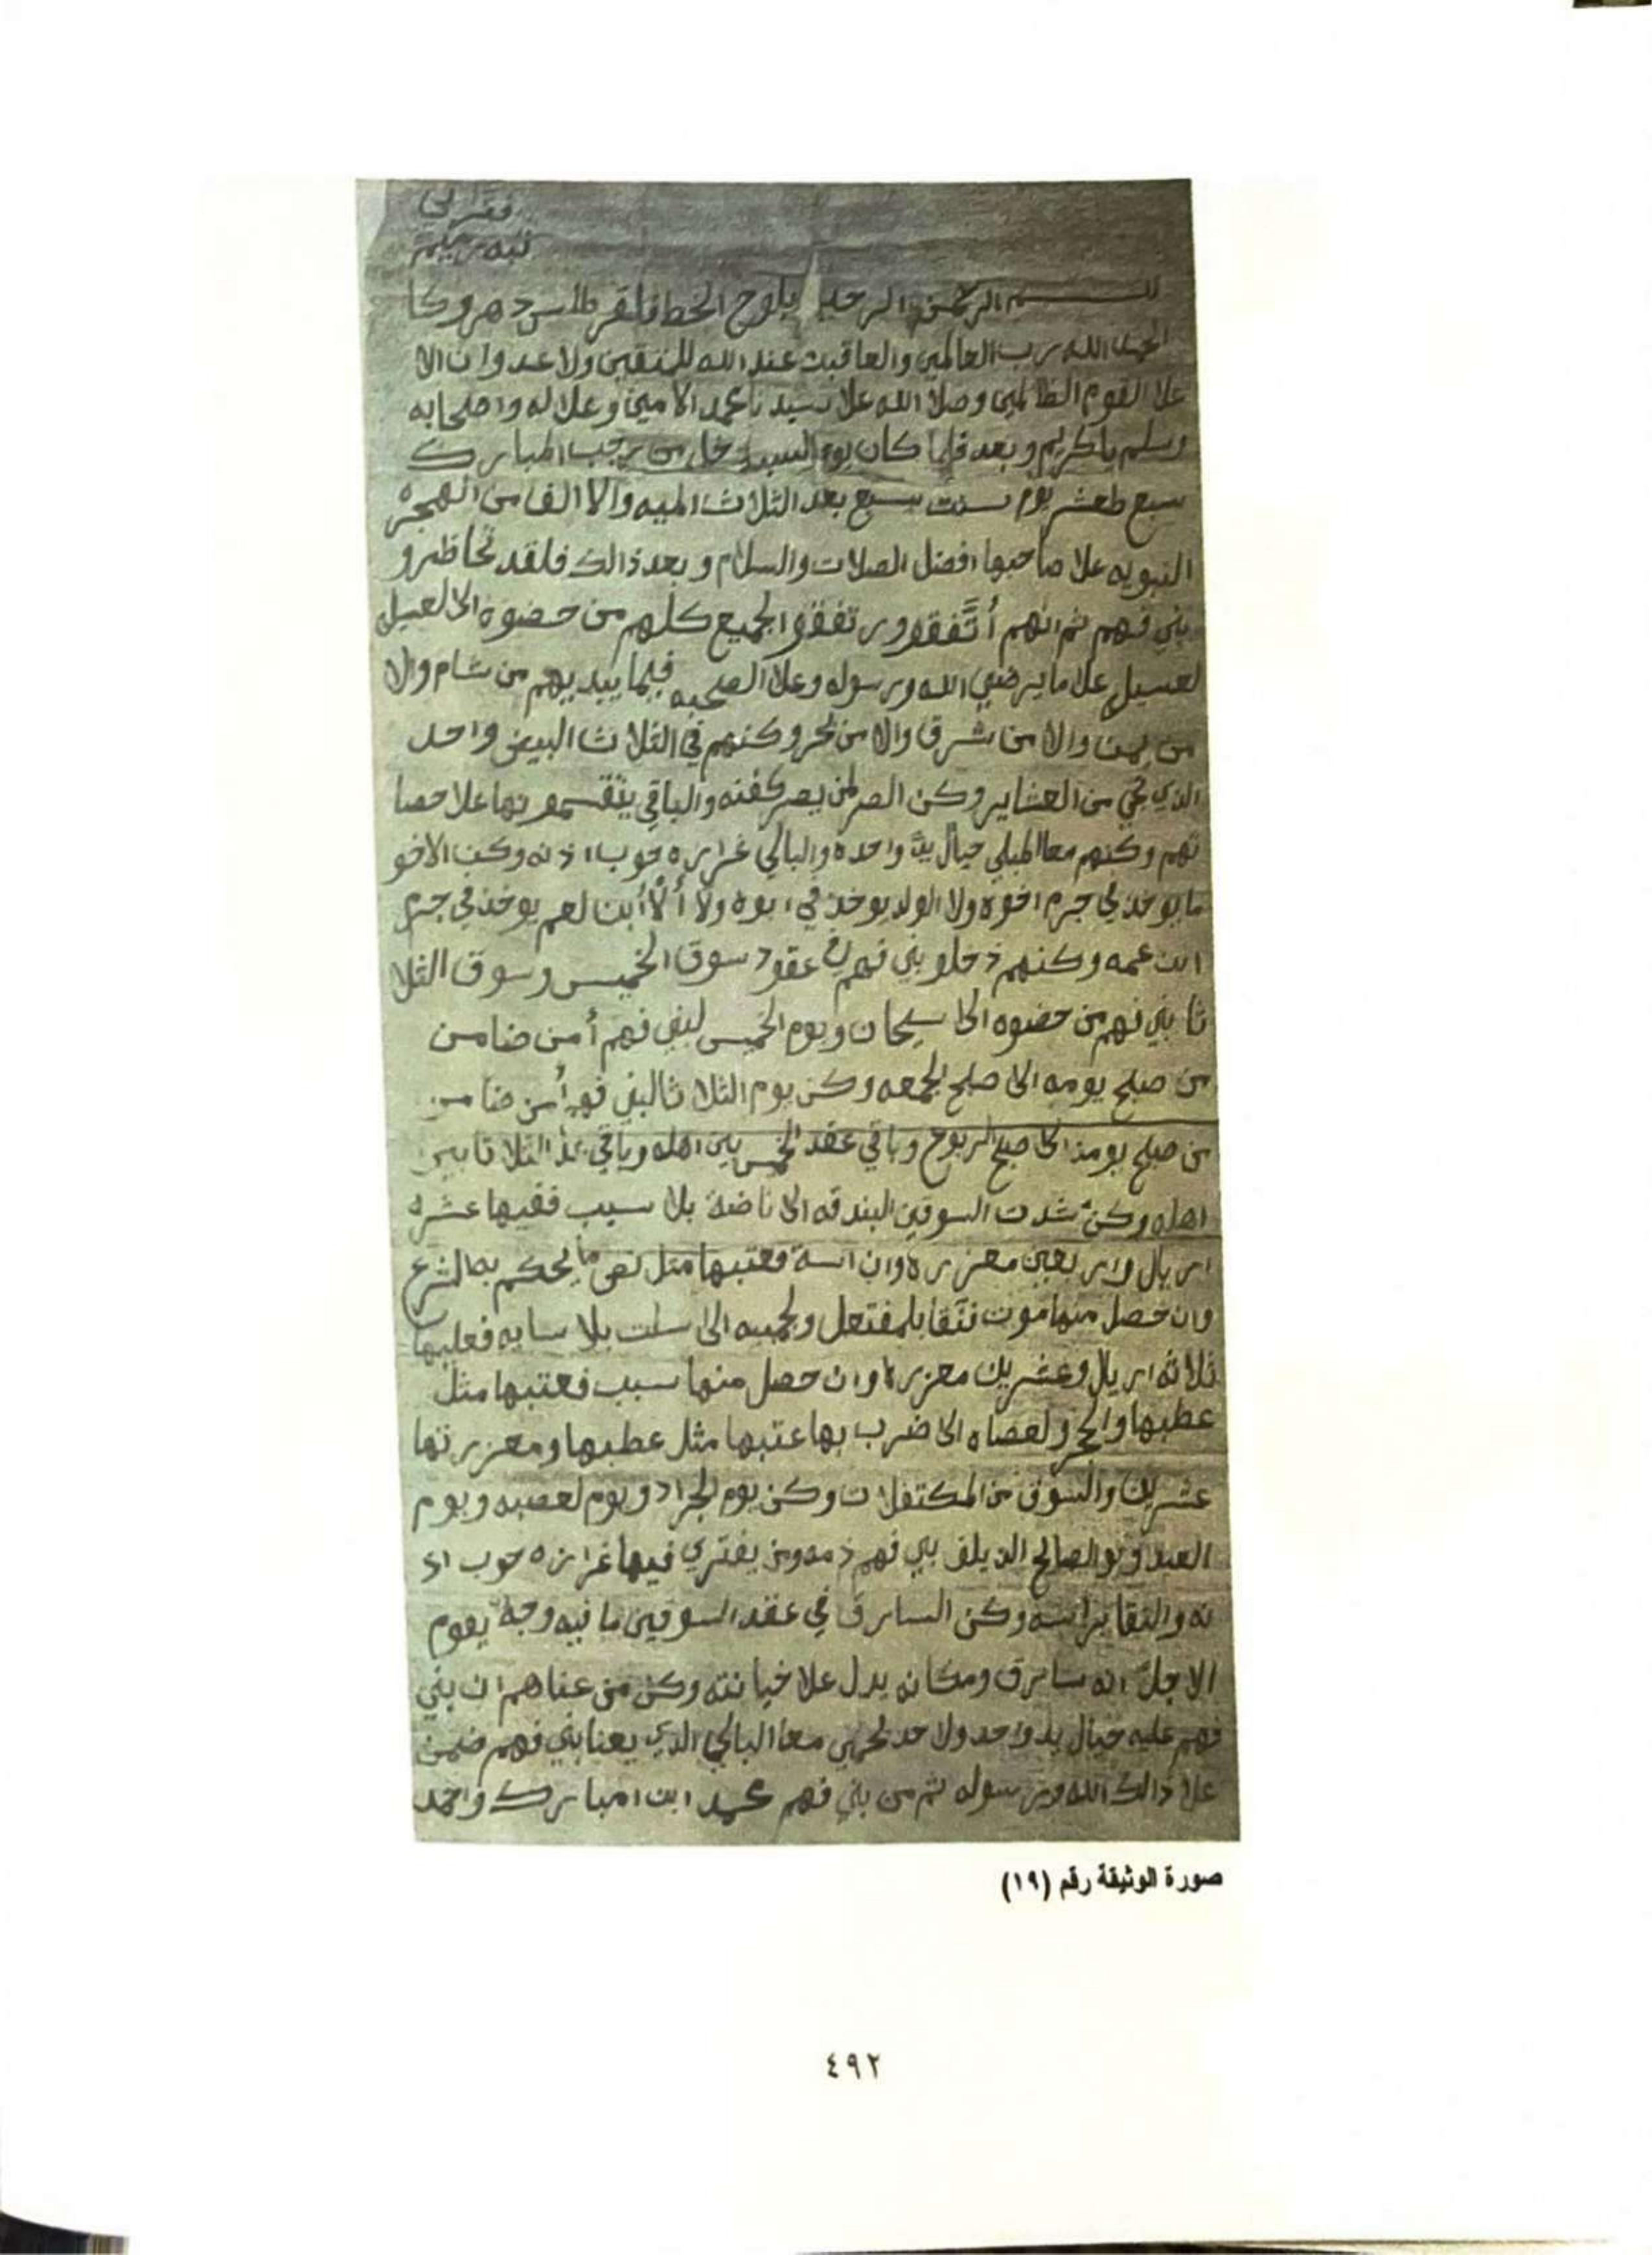 بسم الله الرحمن الرحيم يلوح الخط فلقرطاس دهر وكا
الحمد الله رب العالمين والعاقبت عند الله للمتقين ولا عدوان الا
علا القوم الظالمين وصلا الله علا سيدنا محمد الامين وعلا له واصحابه
وسلم يا كريم وبعد فلما كان يوم السبت خل من رجب المبارك
سبع طعشر يوم سنت سبع بعد الثلاث الميه والا الف من الهجره
النبويه علا صاحبها افضل الصلات والسلام و بعد ذالك فلقد تحاظرو
بني فهم ثم انهم أتَّفقوو وتفقوا الجميع كلهم من حضوة الا لعسيل
لعسيل علا ما يرضي الله ورسوله وعلا الصحبه فيما بيديهم من شام والا
من يمن والا من شرق والا من بحر وكنهم في الثلاث البيض واحد
الذي تجي من العشاير وكن الصر لمن يصر كفنه والباقي يتقسمونها علا حصا
تهم وكنهم معا المبلي حيال يدً واحدة والبالي غرايره حوب اذنه وكن الاخو
ما يوخذ في جرم اخوه ولا الولد يوخذ في ابوه ولا ابن لعم يوخذ في جرم
ابن عمه وكنهم دخلو بني فهم في عقود سوق الخميس وسوق الثلا
ثا بني فهم من حضوه الا سحان ويوم الخميس لبني فهم أمن ضامن
من صبح يومه الا صبح لجمعه وكن يوم الثلا ثا لبني فهم أمن ضامن
من صبح يومه الا صبح الربوع وباقي عقد الخميس بين اهله وباقي عقد الثلاثا بين
اهله وكن شدت السوقين البندقه الا ناضة بلا سبب ففيها عشره
اريال واربعين معزره وان اسة فعتبها مثل نص ما يحكم به الشرع
وان حصل منها موت نتَّقا بلمفتعل ولجمبيه الا سلت بلا سايه فعليها
ثلاثه اريال وعشرين معزره وان حصل منها سبب فعتبها مثل
عطبها والحجر ولعصاه الا ضرب بها عتبها مثل عطبها ومعزرتها
عشرين والسوق من المكتفلات وكن يوم لجراد ويوم لعصبه ويوم
العيد ويو الصالح الذ يلف بني فهم ذمه ومن يفتري فيها غرايزه حوب اذ
نه والنقا براسه وكن السارق في عقد السوقين ما فيه وجهً يقوم
الاجلّ انه سارق ومكانه يدل علا خيانته وكن من عناهم ان بني
فهم عليه حيال يد واحد ولا حد لحربي معا البالي الذي يعنا بني فهم ضمن
علا ذالك الله ورسوله ثم من بني فهم محمد ابن امبارك واحمد
صورة الوثيقة رقم (١٩)
٤٩٢